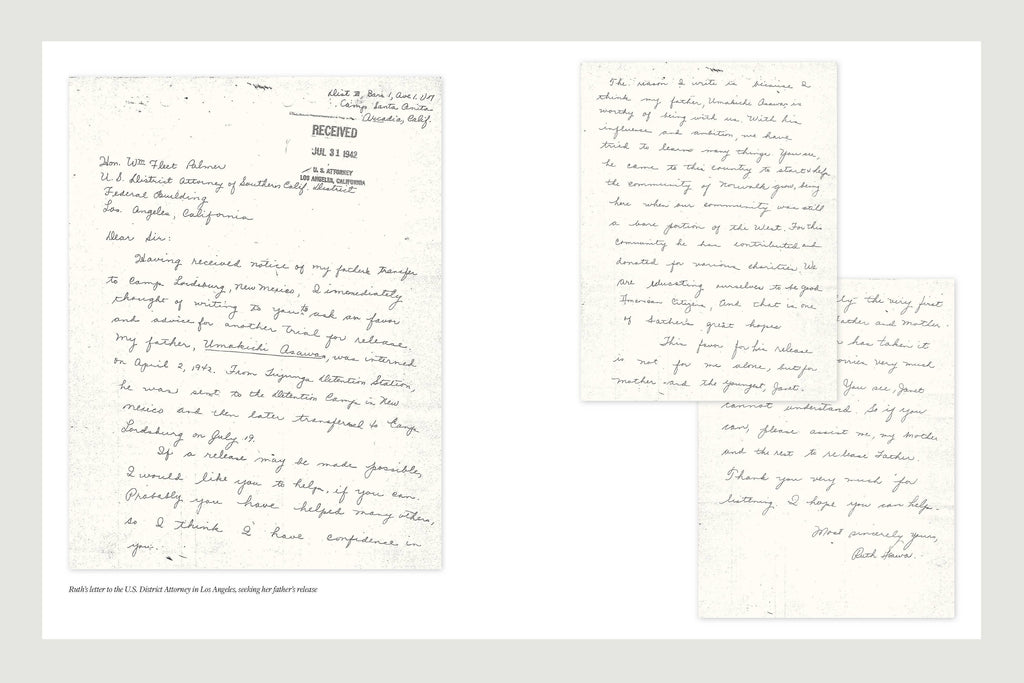 Dist II, Barr 1, Ave 1. U 7
Camp Santa Anita
Arcadia, Calif.
RECEIVED
JUL 31 1942
U. S. ATTORNEY
LOS ANGELES, CALIFORNIA
Hon. Wm Fleet Palmer
U. S. District Attorney of Southern Calif. District
Federal Building
Los Angeles, California
Dear Sir:
Having received notice of my father's transfer
to Camp Lordsburg, New Mexico, I immediately
thought of writing to you to ask an favor
and advice for another trial for release.
My father, Umakichi Asawa, was interned
on April 2, 1942. From Tujunga Detention Station,
he was sent to the Detention Camp in New
Mexico and then later transfered to Camp
Lordsburg on July 19.
If a release may be made possible,
I would like you to help, if you can.
Probably you have helped many others,
so I think I have confidence in
you.
Ruth's letter to the U.S. District Attorney in Los Angeles, seeking her father's release
The reason I write is because I
think my father, Umakichi Asawa, is
worthy of being with us. With his
influence and ambition, we have
tried to learn many things. You see,
he came to this country to start & help
the community of Norwalk grow, being
here when our community was still
a bare portion of the West. For this
community he has contributed and
donated for various charities. We
are educating ourselves to be good
American Citizens, And that is one
of Father's great hopes
This favor for his release
is not for me alone, but for
mother and the youngest, Janet.
the very first
father and mother.
has taken it
very much
You see, Janet
cannot understand. So if you
can, please assist me, my mother
and the rest to release Father.
Thank you very much for
listening. I hope you can help.
Most sincerely yours,
Ruth Asawa.